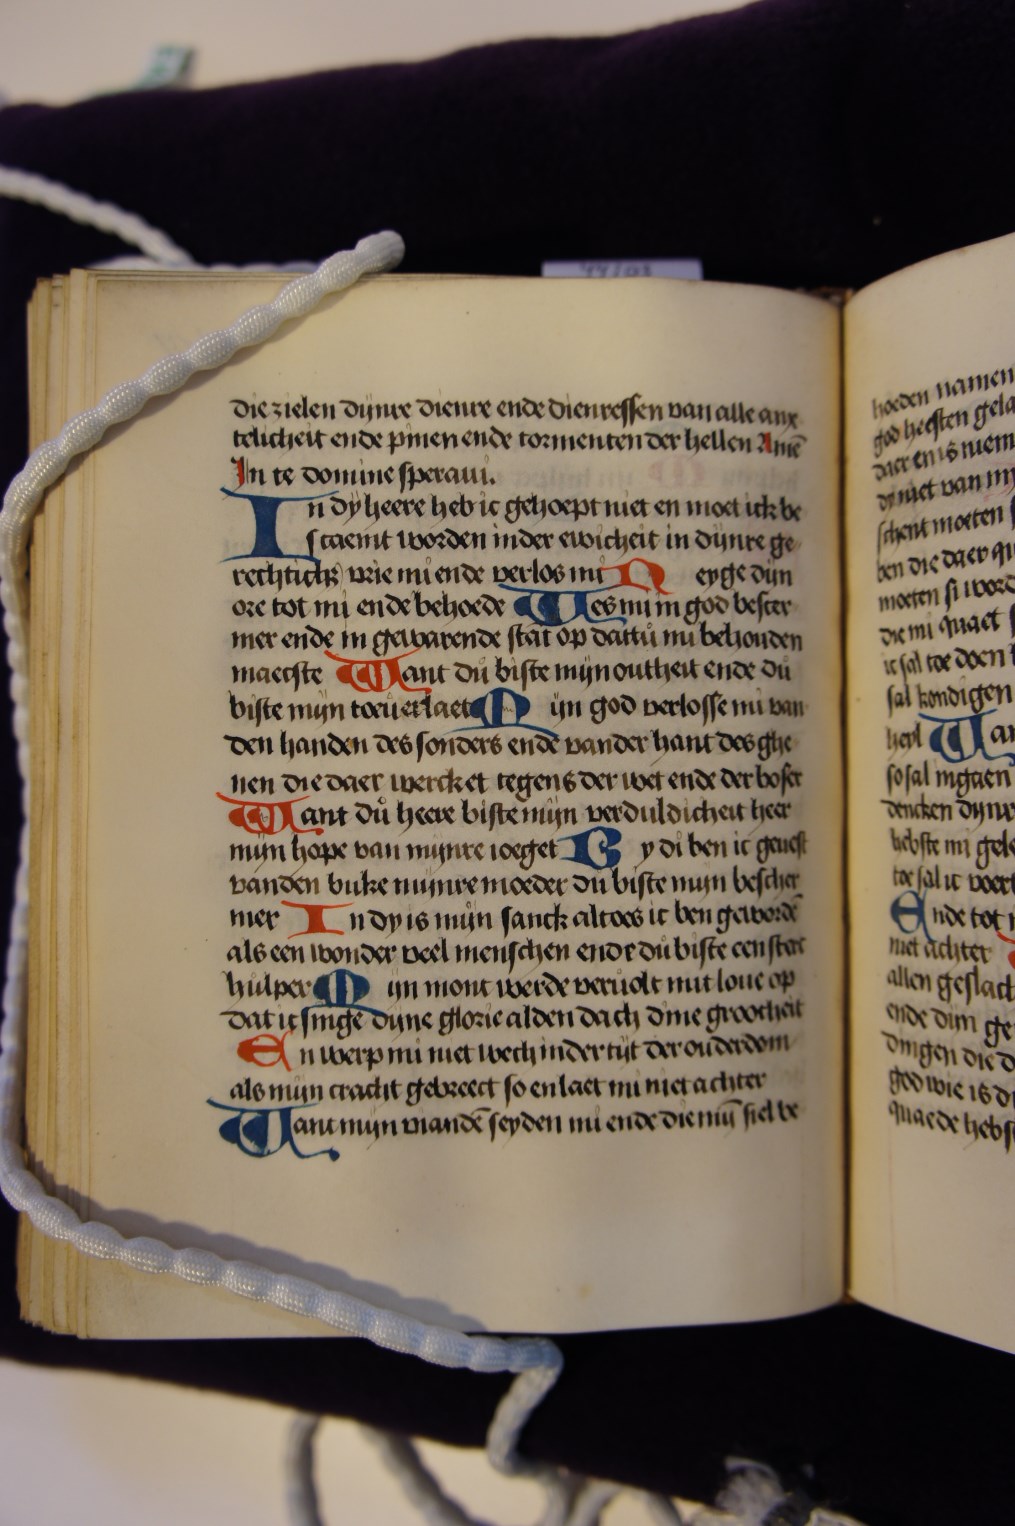 die zielen dijnre dienre ende dienressen van alle anx
telicheit ende pinen ende tormenten der hellen Amē
In te domine speraui.
In dy heere heb ic gehoept niet en moet ick be
scaemt worden inder ewicheit in dijnre ge
rechticheit vrie mi ende verlos mi Neyge dijn
ore tot mi ende behoede Wes mi in god bescer
mer ende in gewarende stat op dattu mi behouden
maecste Want du biste mijn outheit ende du
biste mijn toeuerlaet Mijn god verlosse mi van
den handen des sonders ende vander hant des ghe
nen die daer wercket tegens der wet ende der boser
Want du heere biste mijn verduldicheit heer
mijn hope van mijnre ioeget By di ben ic geuest
vanden buke mijnre moeder du biste mijn bescher
mer In dy is mijn sanck altoes ic ben gewordē
als een wonder veel menschen ende du biste een sterc
hulper Mijn mont werde veruolt mit loue op
dat ic singe dijne glorie alden dach dine grootheit
En werp mi niet wech inder tijt der ouderdom
als mijn cracht gebreect so en laet mi niet achter
Want mijn viandē seyden mi ende die mijn siel be
hoeden namen
god heesten gela
daer en is niem
dy niet van my
schent moeten
ben die daer qu
moeten si word
die mi quaet s
ic sal toe doen
sal kondigen
heyl Wan
so sal ingaen
dencken dijnr
hebste mi gele
toe sal ic voert
Ende tot
niet achter
allen geslach
ende dijn ge
dingen die d
god wie is d
quaede hebs